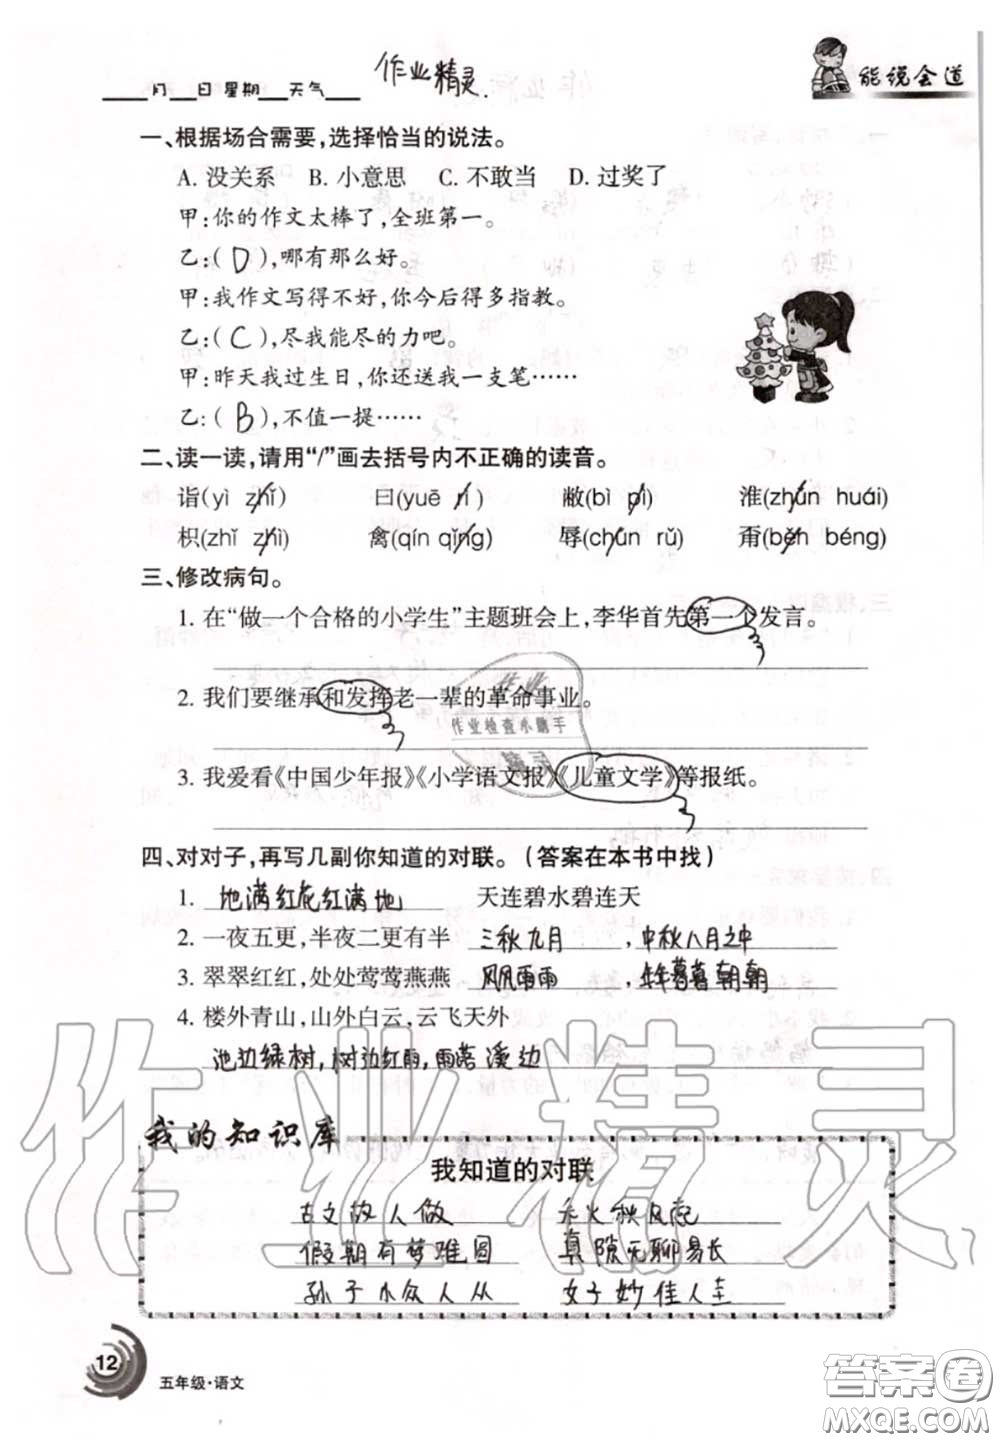 能说会道
___月___日星期___天气___ 作业精灵.
一、根据场合需要,选择恰当的说法。
A. 没关系 B. 小意思 C. 不敢当 D. 过奖了
甲:你的作文太棒了,全班第一。
乙:( D ),哪有那么好。
甲:我作文写得不好,你今后得多指教。
乙:( C ),尽我能尽的力吧。
甲:昨天我过生日,你还送我一支笔……
乙:( B ),不值一提……
二、读一读,请用“/”画去括号内不正确的读音。
诣(yì zhǐ) 曰(yuē rì) 敝(bì pì) 淮(zhǔn huái)
枳(zhǐ zhì) 禽(qín qǐng) 辱(chǔn rǔ) 甭(běn béng)
三、修改病句。
1. 在“做一个合格的小学生”主题班会上,李华首先第一个发言。
2. 我们要继承和发挥老一辈的革命事业。
作业
作业检查小助手
精灵
3. 我爱看《中国少年报》《小学语文报》《儿童文学》等报纸。
四、对对子,再写几副你知道的对联。(答案在本书中找)
1. 地满红花红满地 天连碧水碧连天
2. 一夜五更,半夜二更有半 三秋九月,中秋八月之中
3. 翠翠红红,处处莺莺燕燕 风风雨雨,年年暮暮朝朝
4. 楼外青山,山外白云,云飞天外
池边绿树,树边红雨,雨落溪边
我的知识库
我知道的对联
古文故人做
假期有梦难圆 真隙无聊易长
孙子小众人从 女子妙佳人圭
作业精灵
12
五年级·语文
答案圈
MXQE.COM